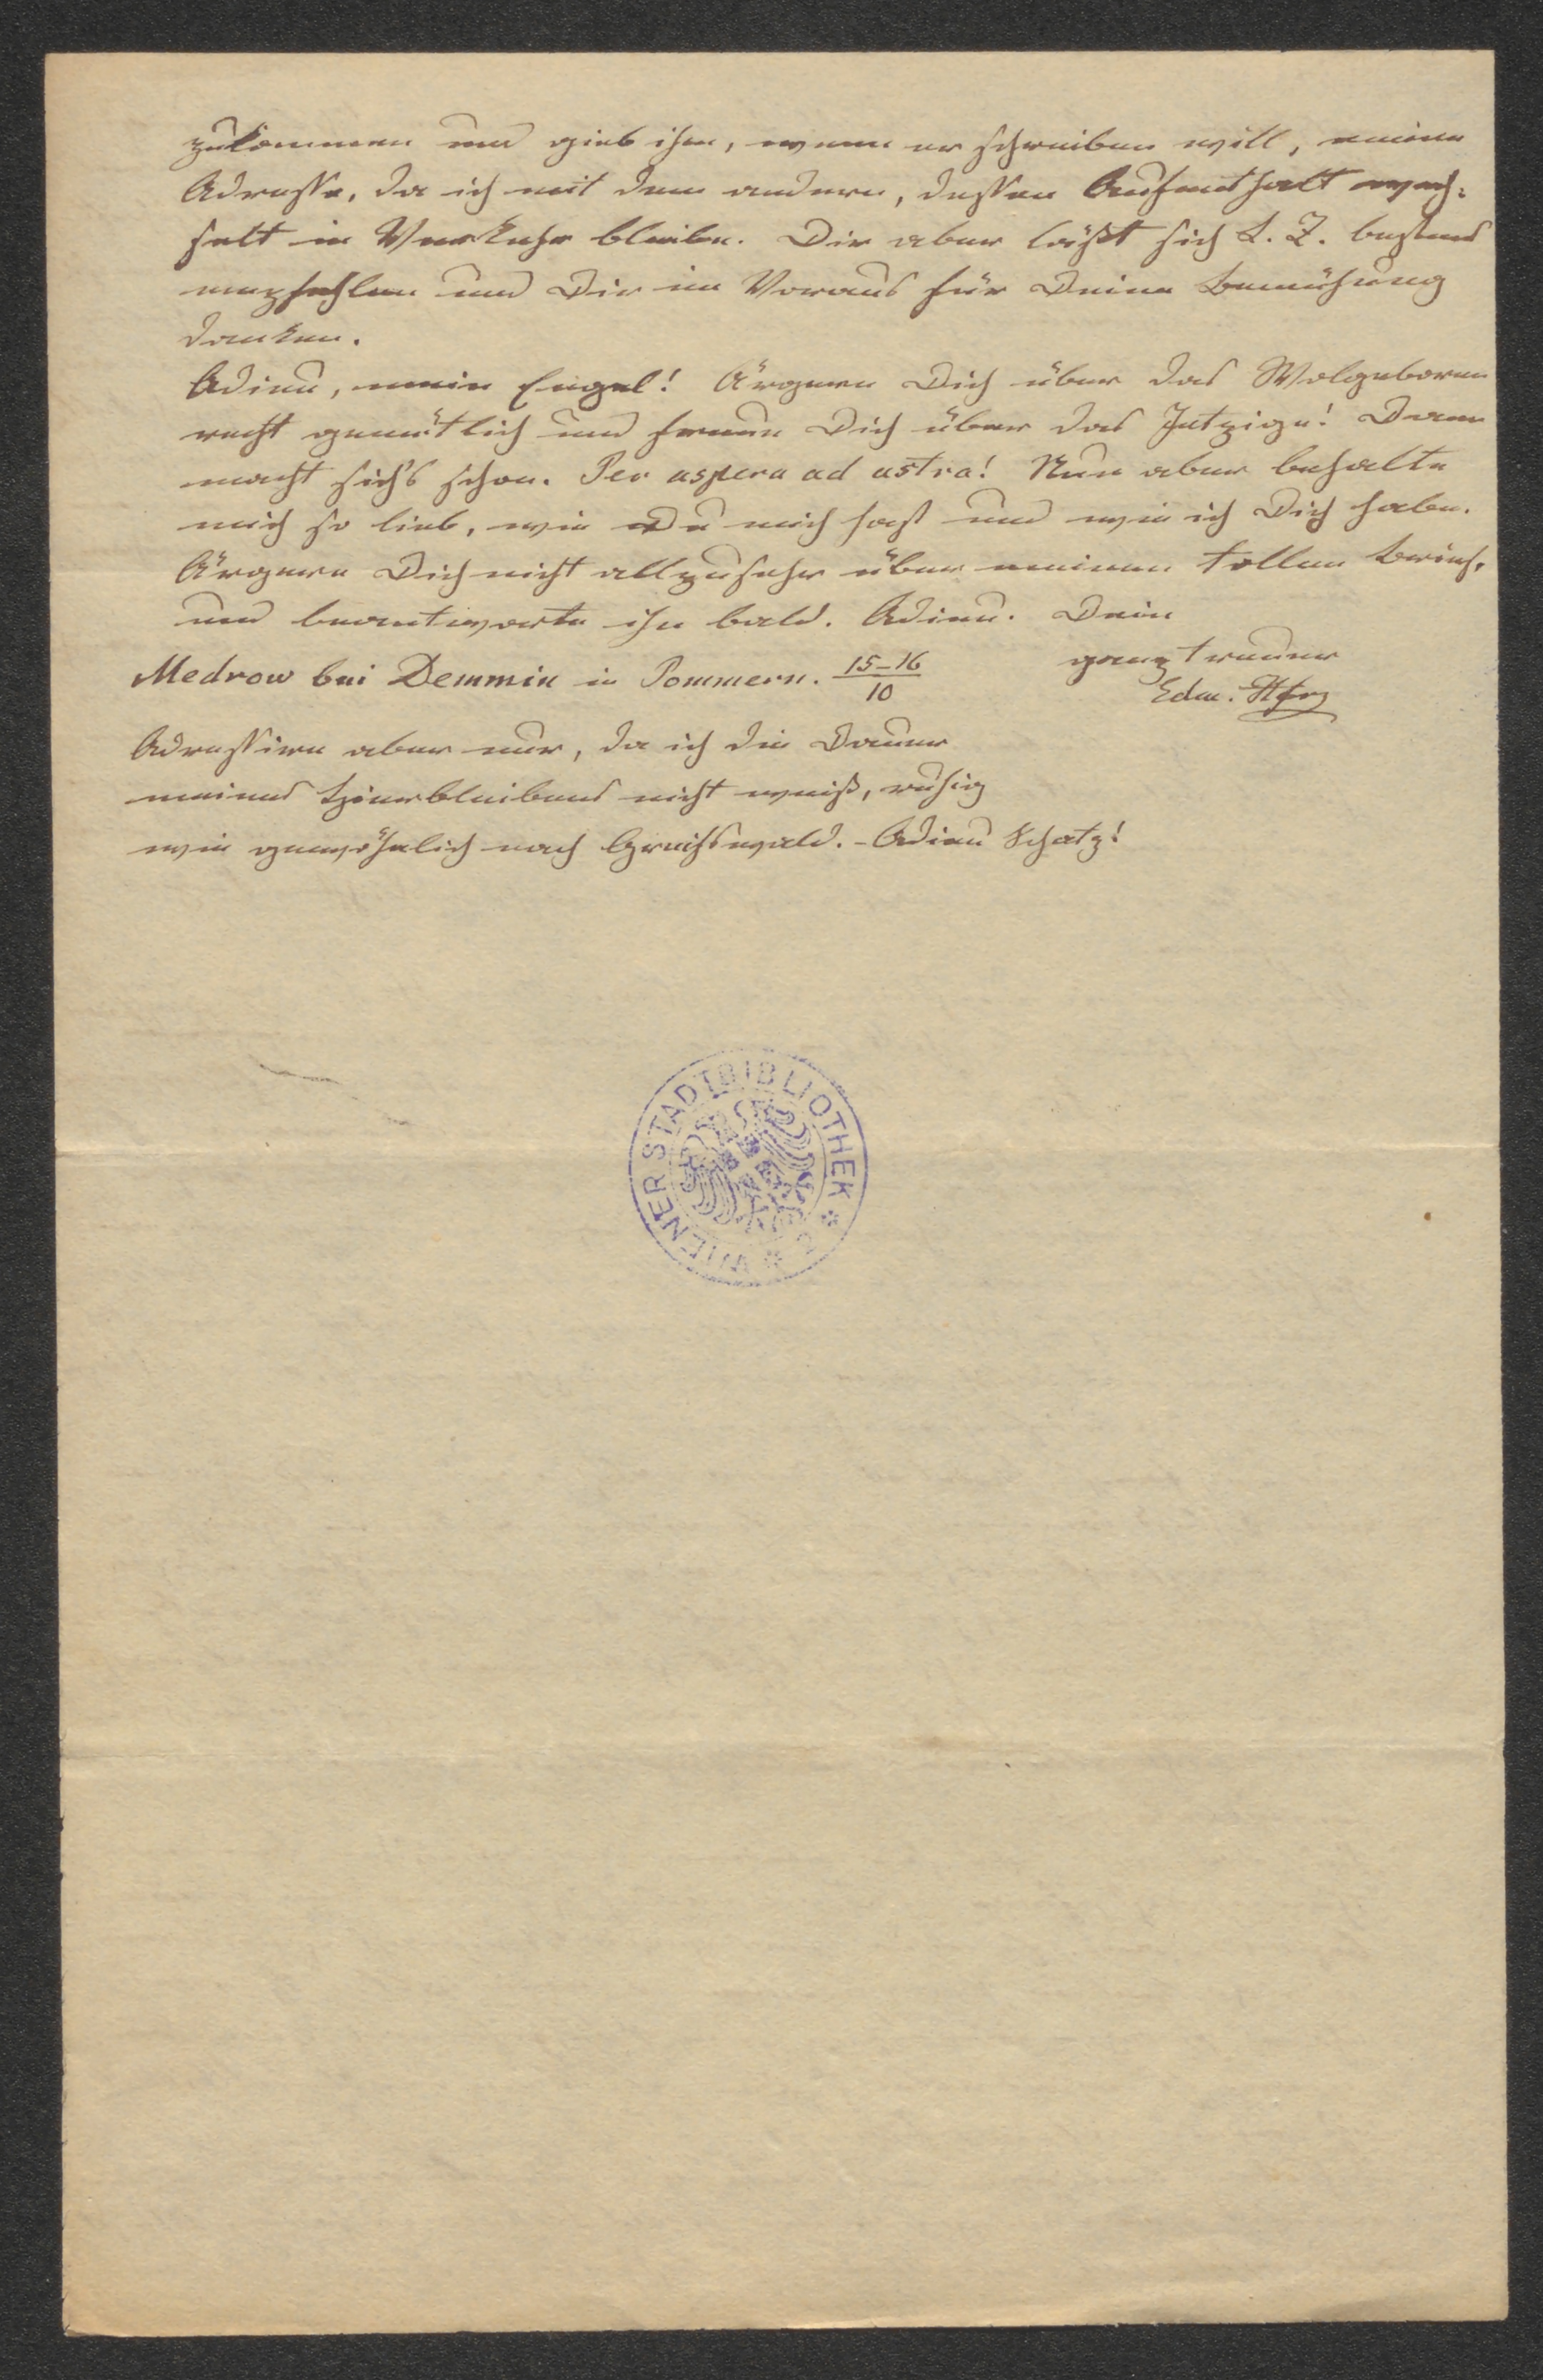 zukommen und gieb ihm, wenn er schreiben will, meine
Adresse, da ich mit dem andern, dessen Aufenthalt wech-
selt in Verkehr bleibe. Dir aber läßt sich L. Z. bestens
empfehlen und Dir im Voraus für Deine Bemühung
danken.
Adieu, mein Engel! Ärgere Dich über das Wolgeboren
recht gemütlich und freue Dich über das Jetzige! Dann
macht sich's schon. Per aspera ad astra! Nun aber behalte
mich so lieb, wie Du mich hast und wie ich Dich habe.
Ärgere Dich nicht allzusehr über meinen tollen Brief,
und beantworte ihn bald. Adieu. Dein
ganz treuer
Medrow bei Demmin in Pommern. 15-16/10
Edm. Hfrz
Adressire aber nur, da ich die Dauer
meines Hierbleibens nicht weiß, ruhig
wie gewöhnlich nach Greifswald. - Adieu Schatz!
WIENER STADTBIBLIOTHEK